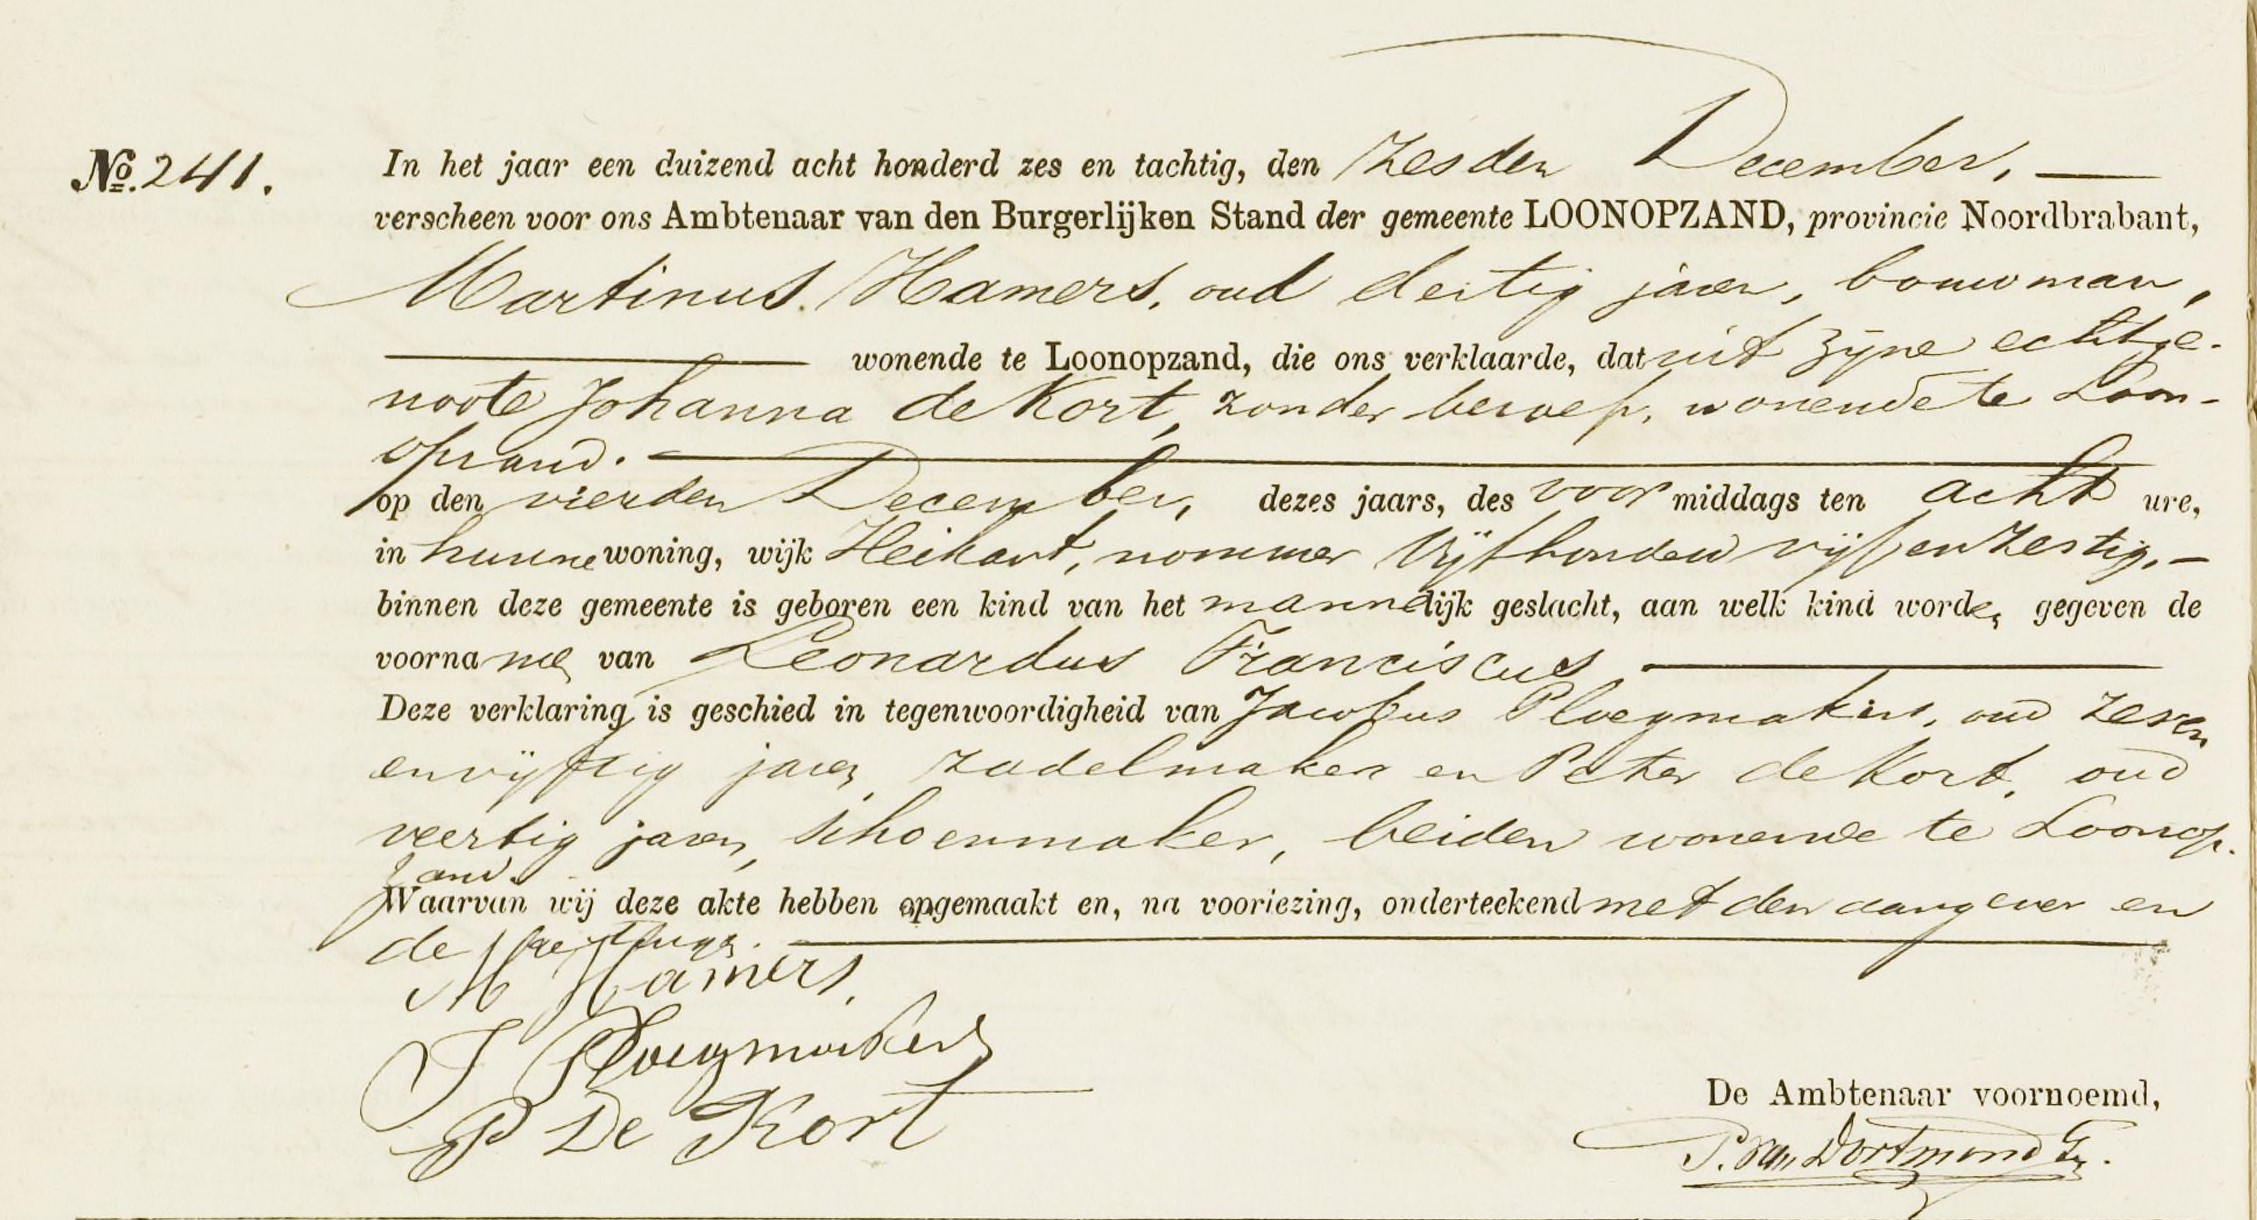 No. 241.
In het jaar een duizend acht honderd zes en tachtig, den zesden December,
verscheen voor ons Ambtenaar van den Burgerlijken Stand der gemeente LOONOPZAND, provincie Noordbrabant,
Martinus Hamers, oud dertig jaren, bouwman,
wonende te Loonopzand, die ons verklaarde, dat uit zijne echtge-
noote Johanna de Kort, zonder beroep, wonende te Loon-
opzand.
op den vierden December, dezes jaars, des voormiddags ten acht ure,
in hunne woning, wijk Heikant, nommer vijfhonderd vijf en zestig,
binnen deze gemeente is geboren een kind van het mannelijk geslacht, aan welk kind worden gegeven de
voornamen van Leonardus Franciscus
Deze verklaring is geschied in tegenwoordigheid van Jacobus Ploegmakers, oud zeven
en vijftig jaren, zadelmaker en Peter de Kort, oud
veertig jaren, schoenmaker, beiden wonende te Loonop-
zand.
Waarvan wij deze akte hebben opgemaakt en, na voorlezing, onderteekend met den aangever en
de getuigen.
M Hamers,
J Ploegmakers
P De Kort
De Ambtenaar voornoemd,
P. van Dortmond